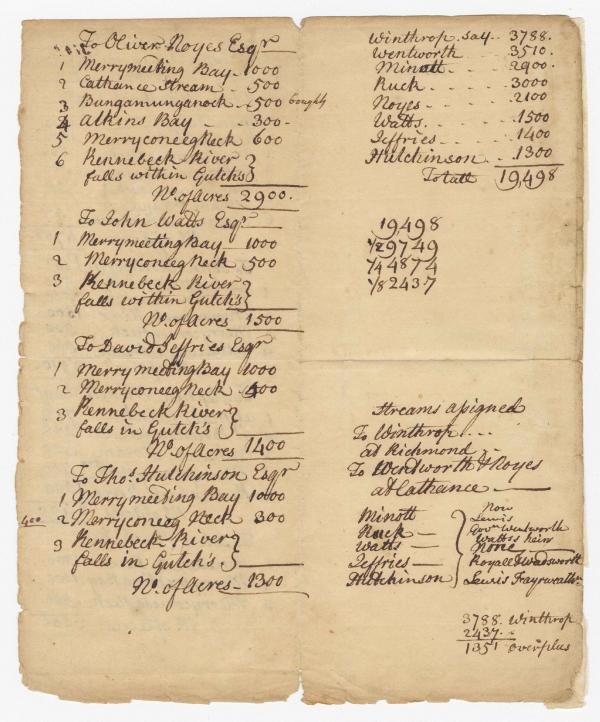 To Oliver Noyes Esqr
1 Merrymeeting Bay - 1000
2 Cathance Stream - 500
3 Bungamunganock - 500 bought
4 Atkins Bay - 300 -
5 Merryconeeg Neck 600
6 Kennebeck River
falls within Gutch's
No. of acres 2900.
To John Watts Esqr
1 Merrymeeting Bay - 1000
2 Merryconeeg Neck 500
3 Kennebeck River
falls within Gutch's
No. of Acres 1500
To David Jeffries Esqr
1 Merrymeeting Bay 1000
2 Merryconeeg Neck 400
3 Kennebeck River
falls in Gutch's
No. of Acres 1400
To Thos. Hutchinson Esqr
1 Merrymeeting Bay 1000
400 2 Merryconeeg Neck 300
3 Kennebeck River
falls in Gutch's
No. of Acres - 1300
Winthrop say - 3788.
Wentworth 3510.
Minott 2900.
Ruck 3000
Noyes 2100
Watts 1500
Jeffries 1400
Hutchinson 1300
Totall 19,498
19,498
1/2 9749
1/4 4874
1/8 2437
Streams assigned
To Winthrop
at Richmond
To Wendworth & Noyes
at Cathance
Now
Minott Lewis
Ruck Govr. Wentworth
Watts Wattses heirs
None
Jeffries Royall & Wadsworth
Hutchinson Lewis Frayrweathr.
3788. Winthrop
2437.
1351 overplus